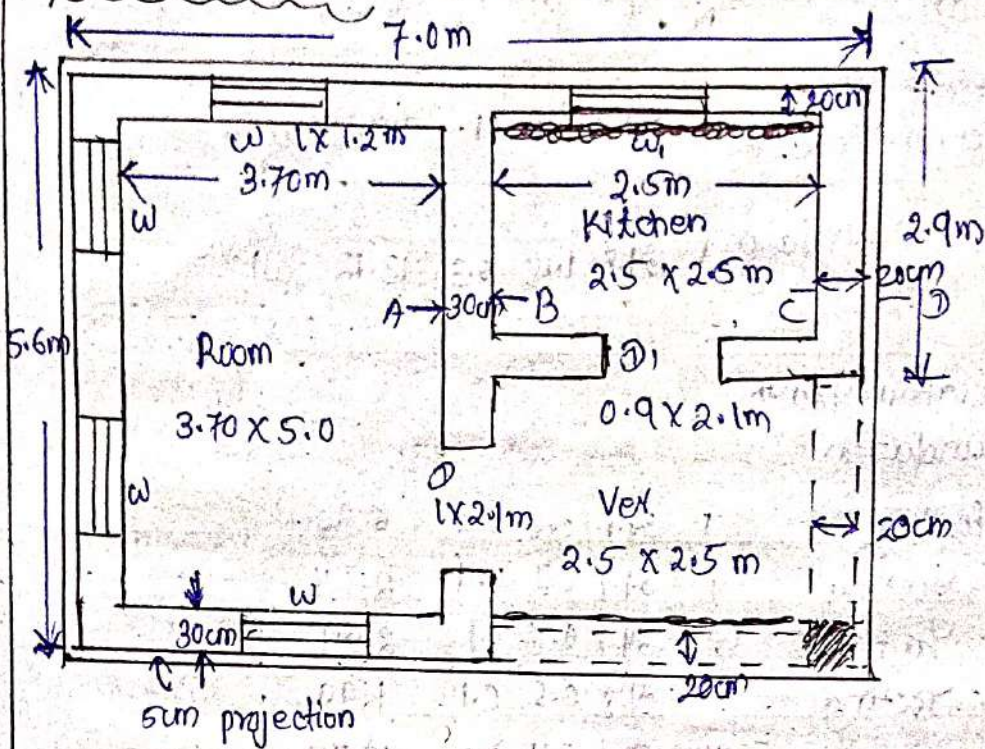 7.0m
20cm
W 1 X 1.2m
W1
3.70m
2.5m
W
Kitchen
2.9m
2.5 X 2.5m
20cm
A 30cm B
C
D
5.6m
Room
D1
3.70 X 5.0
0.9 X 2.1m
D
W
1X2.1m
Ver.
20cm
2.5 X 2.5m
W
30cm
20cm
5cm projection